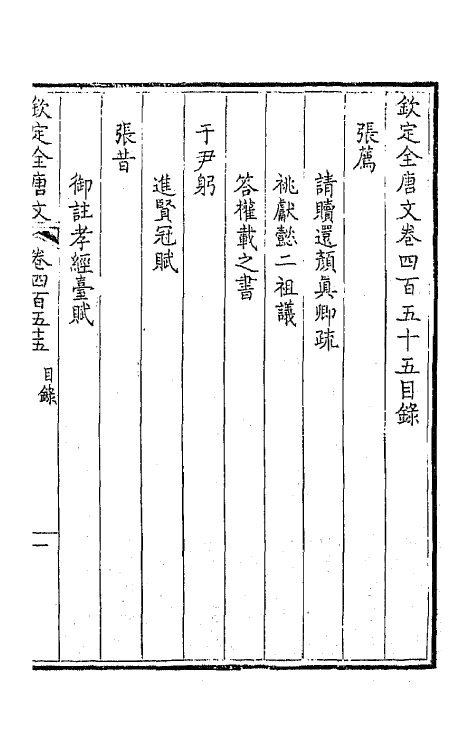 欽定全唐文卷四百五十五目錄
張薦
請贖還顏真卿疏
祧獻懿二祖議
答權載之書
于尹躬
進賢冠賦
張昔
御註孝經臺賦
欽定全唐文 卷四百五十五 目錄 一